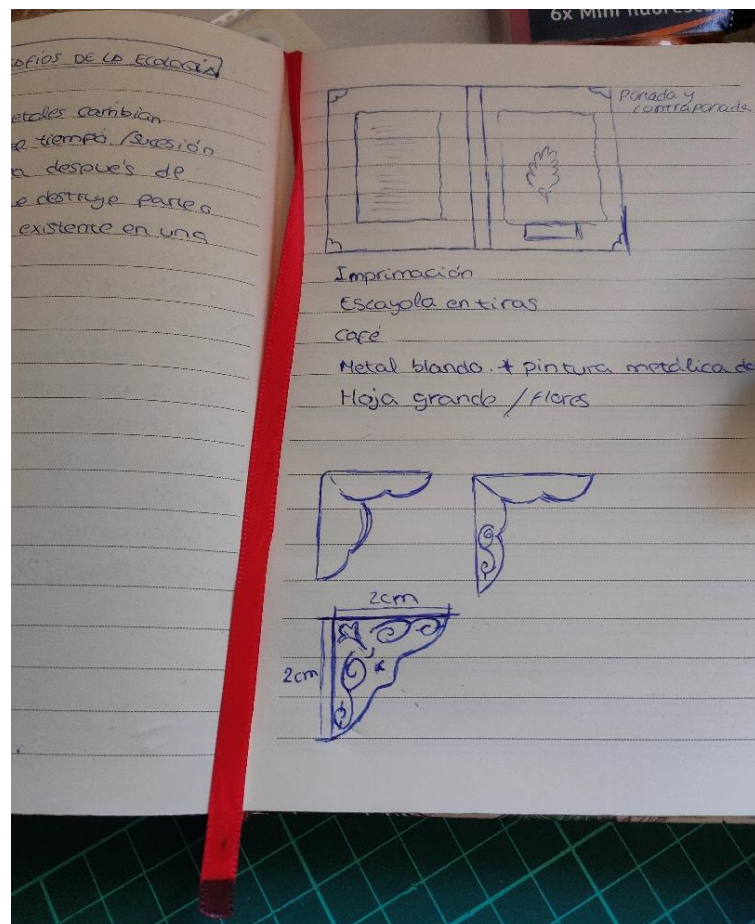 6x Mini fluoresc
DE LA ECOLOGÍA
cambian
tiempo /sucesión
a después de
e destruye parte o
existente en una
Portada y
contraportada
Imprimación
Escayola en tiras
Café
Metal blando. * pintura metálica de
Hoja grande / Flores
2cm
2cm